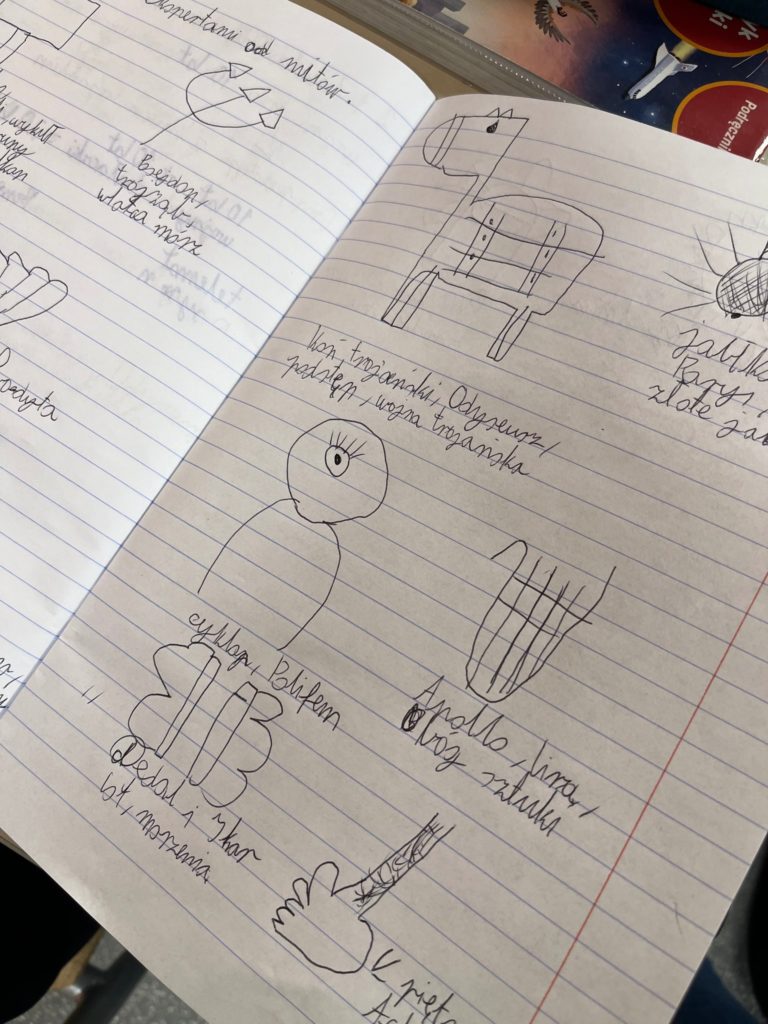 ekspertami od mitów.
Posejdon,
trójząb,
władca mórz
koń trojański, Odyseusz,
podstęp, wojna trojańska
Parys,
złote
cyklop, Polifem
Apollo, lira,
bóg sztuki
Dedal i Ikar
lot, marzenia
pięta
Podręcznik